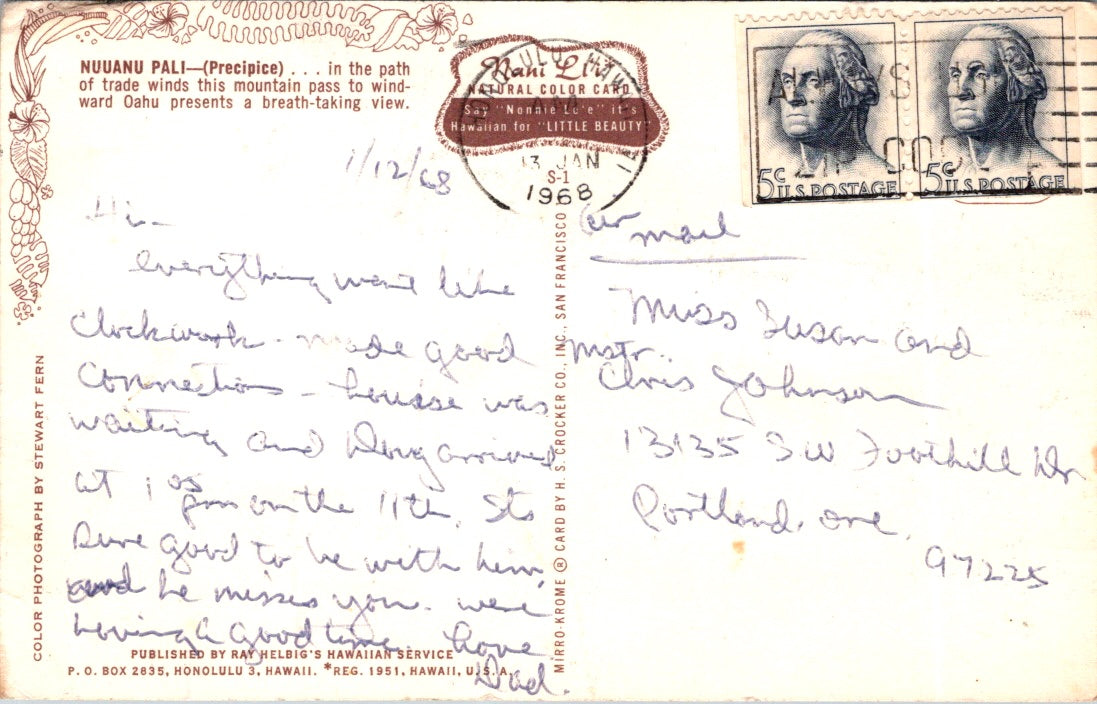 NUUANU PALI—(Precipice) . . . in the path
of trade winds this mountain pass to wind-
ward Oahu presents a breath-taking view.
Nani Li'i
NATURAL COLOR CARD
Say "Nonnie Le'e" it's
Hawaiian for "LITTLE BEAUTY"
HONOLULU, HAWAII
13 JAN
S-1
1968
ALWAYS USE
ZIP CODE
5¢ U.S. POSTAGE
5¢ U.S. POSTAGE
1/12/68
Hi—
Everything went like
Clockwork - made good
Connections - Louise was
waiting and Doug arrived
at 1 05
pm on the 11th. Its
Sure good to be with him,
and he misses you. were
having a good time. Love
Dad.
Air
mail
Miss Susan and
Mstr.
Chris Johnson
13135 SW Foothill Dr
Portland, ore,
97225
COLOR PHOTOGRAPH BY STEWART FERN
MIRRO-KROME ® CARD BY H. S. CROCKER CO., INC., SAN FRANCISCO
PUBLISHED BY RAY HELBIG'S HAWAIIAN SERVICE
P. O. BOX 2835, HONOLULU 3, HAWAII. *REG. 1951, HAWAII, U. S. A.